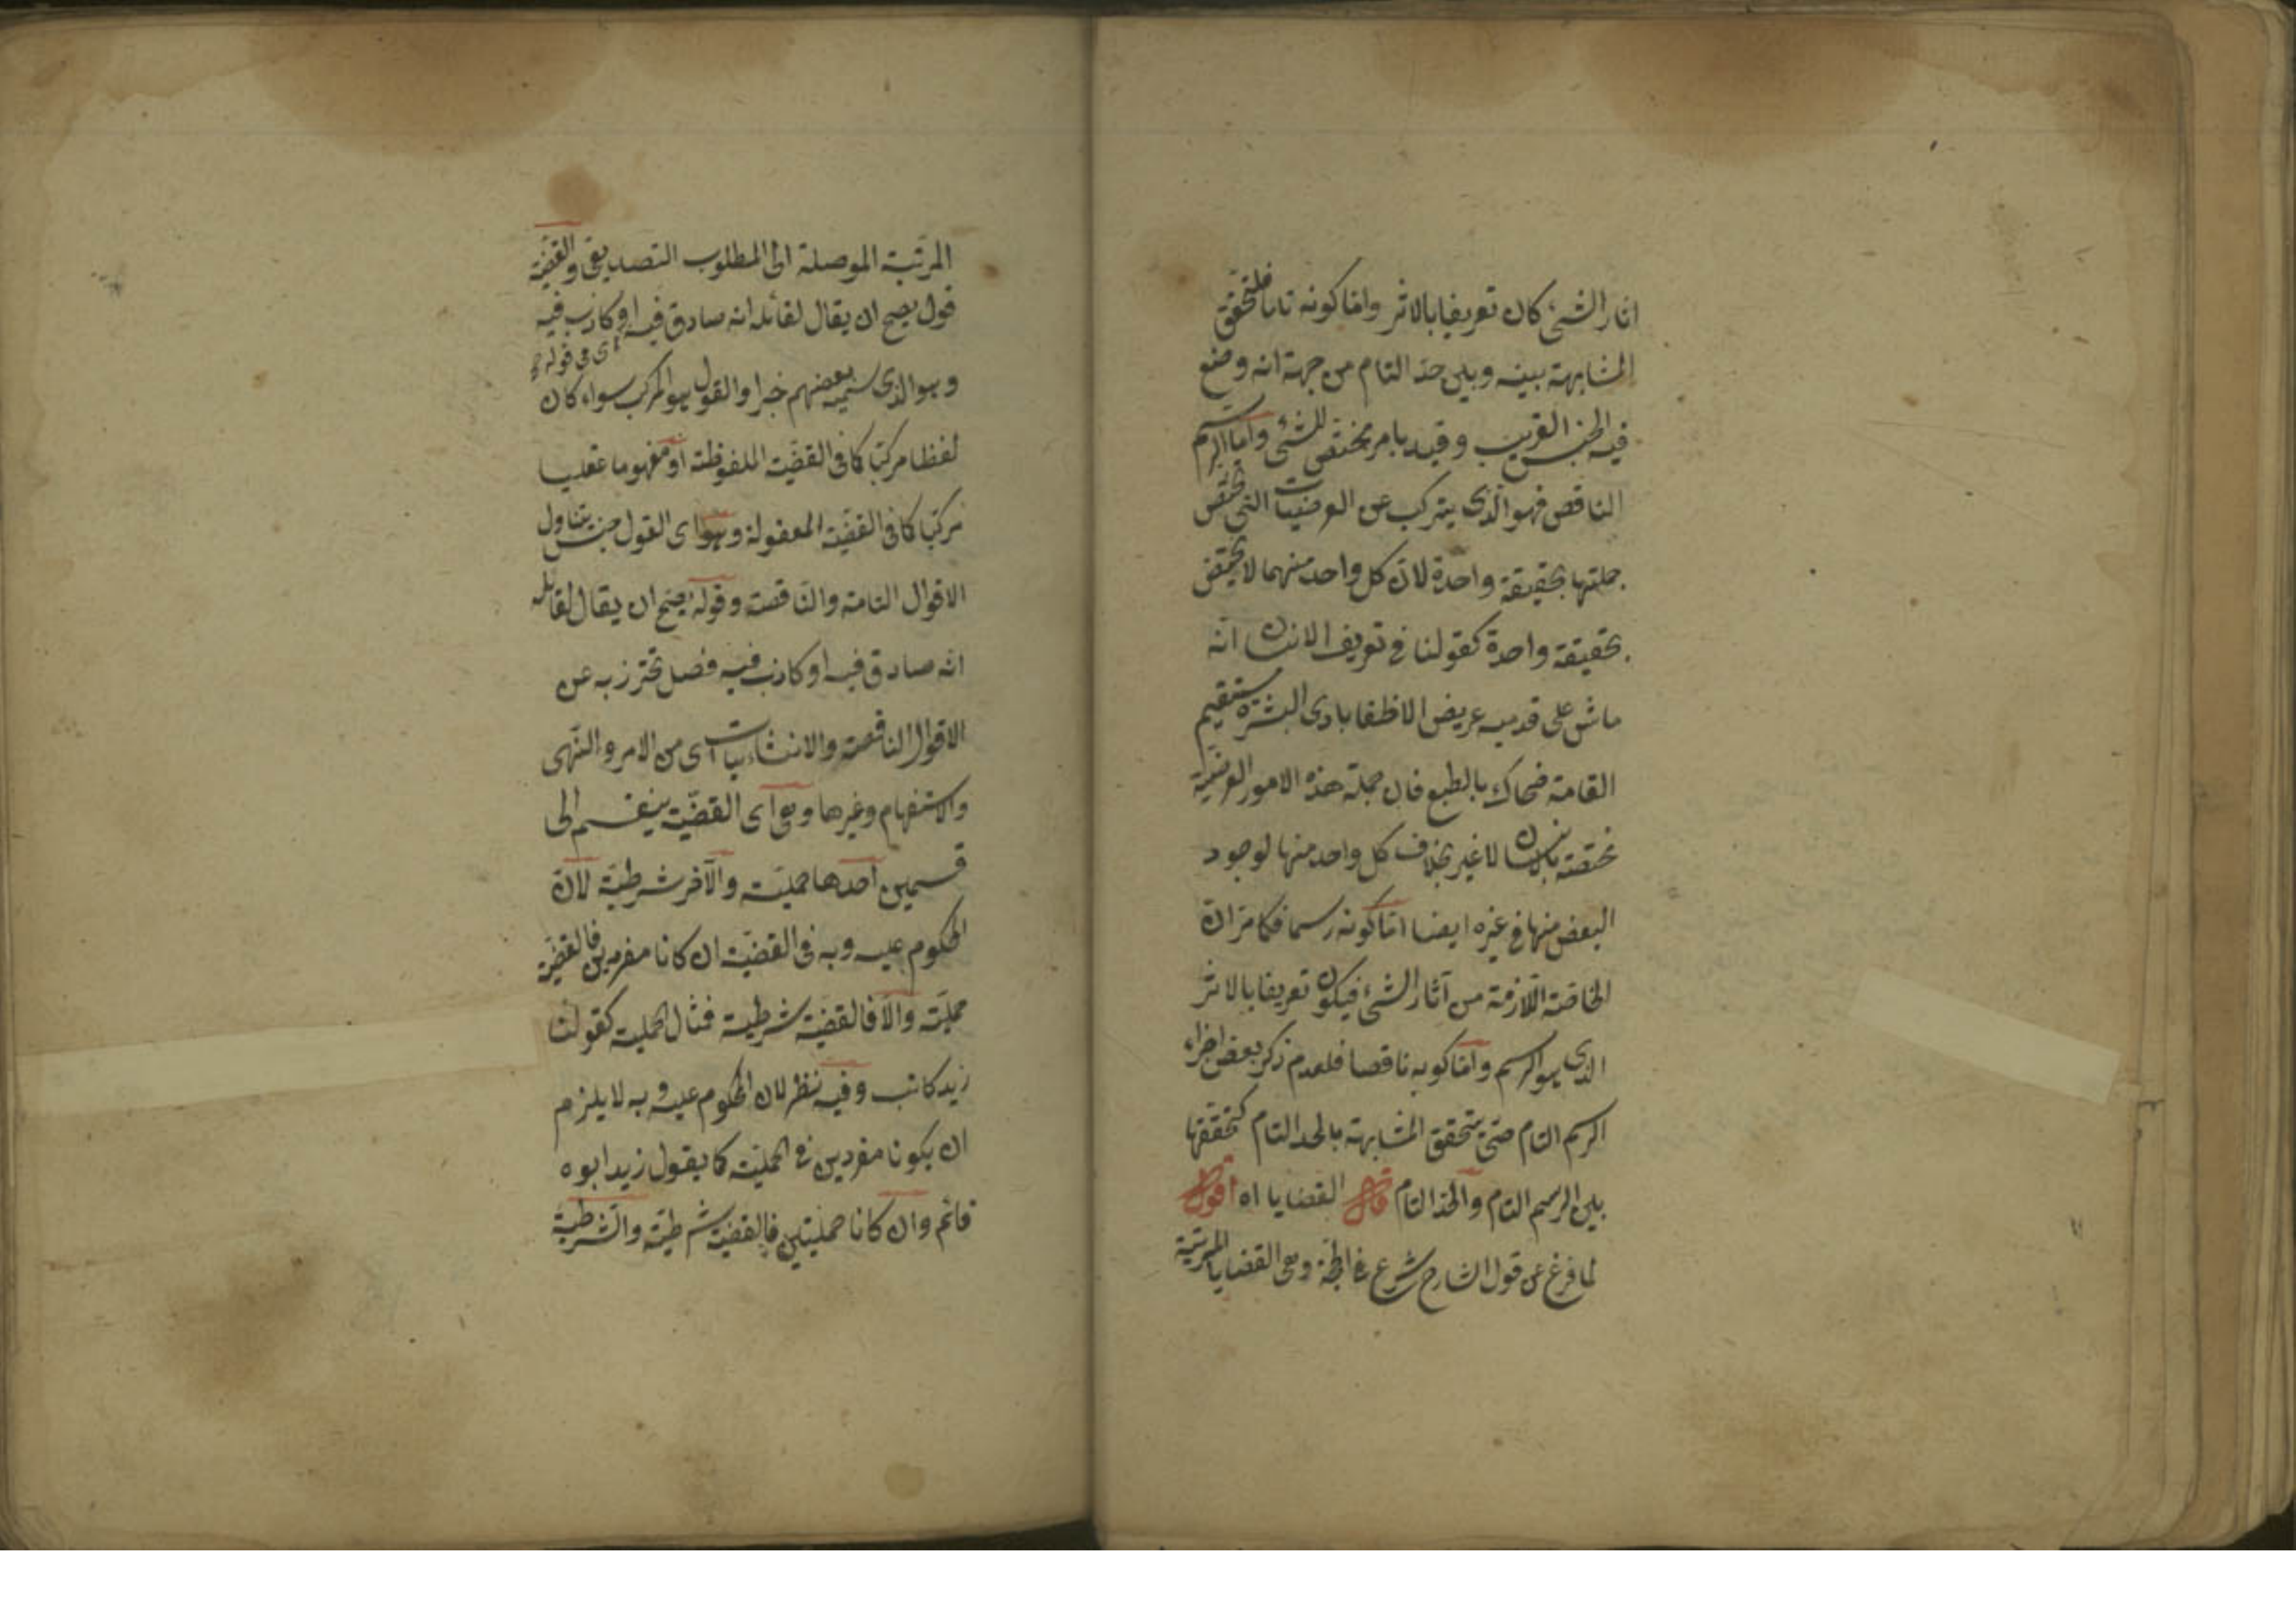 اثار الشئ كان تعريفا بالاثر واما كونه تاما فلتحقق
المشابهة بينه وبين حد التام من جهة انه وضع
فيه الجنس القريب وقيد بامر مختص للشئ واما الرسم
الناقص فهو الذى يتركب عن العرضيات التى تختص
جملتها بحقيقة واحدة لان كل واحد منهما لا يختص
بحقيقة واحدة كقولنا فى تعريف الانسان انه
ماش على قدميه عريض الاظفا بادى البشرة مستقيم
القامة ضحاك بالطبع فان جملة هذه الامور العرضية
مختصة بالانسان لا غير بخلاف كل واحد منها لوجود
البعض منها فى غيره ايضا اما كونه رسما فكما مر ان
الخاصة اللازمة من آثار الشئ فيكون تعريفا بالاثر
الذى هو الرسم واما كونه ناقصا فلعدم ذكر بعض اجزاء
الرسم التام حتى تتحقق المشابهة بالحد التام كتحققها
بين الرسم التام والحد التام قال القضايا اه اقول
لما فرغ عن قول الشارح شرع فى الحجة وهى القضايا المرتبة
المرتبة الموصلة الى المطلوب التصديقى والقضية
قول يصح ان يقال لقائله انه صادق فيه او كاذب فيه
اى فى قوله
وهو الذى يسميه بعضهم خبرا والقول هو المركب سواء كان
لفظا مركبا كما فى القضية الملفوظة او مفهوما عقليا
مركبا كما فى القضية المعقولة وهو اى القول جنس يتناول
الاقوال التامة والناقصة وقوله يصح ان يقال لقائله
انه صادق فيه او كاذب فيه فصل تحترز به عن
الاقوال الناقصة والانشائيات اى من الامر والنهى
والاستفهام وغيرها وهى اى القضية ينقسم الى
قسمين احدها حملية والآخر شرطية لان
المحكوم عليه وبه فى القضية ان كانا مفردين فالقضية
حملية والا فالقضية شرطية فمثال الحملية كقولنا
زيد كاتب وفيه نظر لان المحكوم عليه وبه لا يلزم
ان يكونا مفردين فى الحملية كما يقول زيد ابوه
قائم وان كانا حمليتين فالقضية شرطية والشرطية